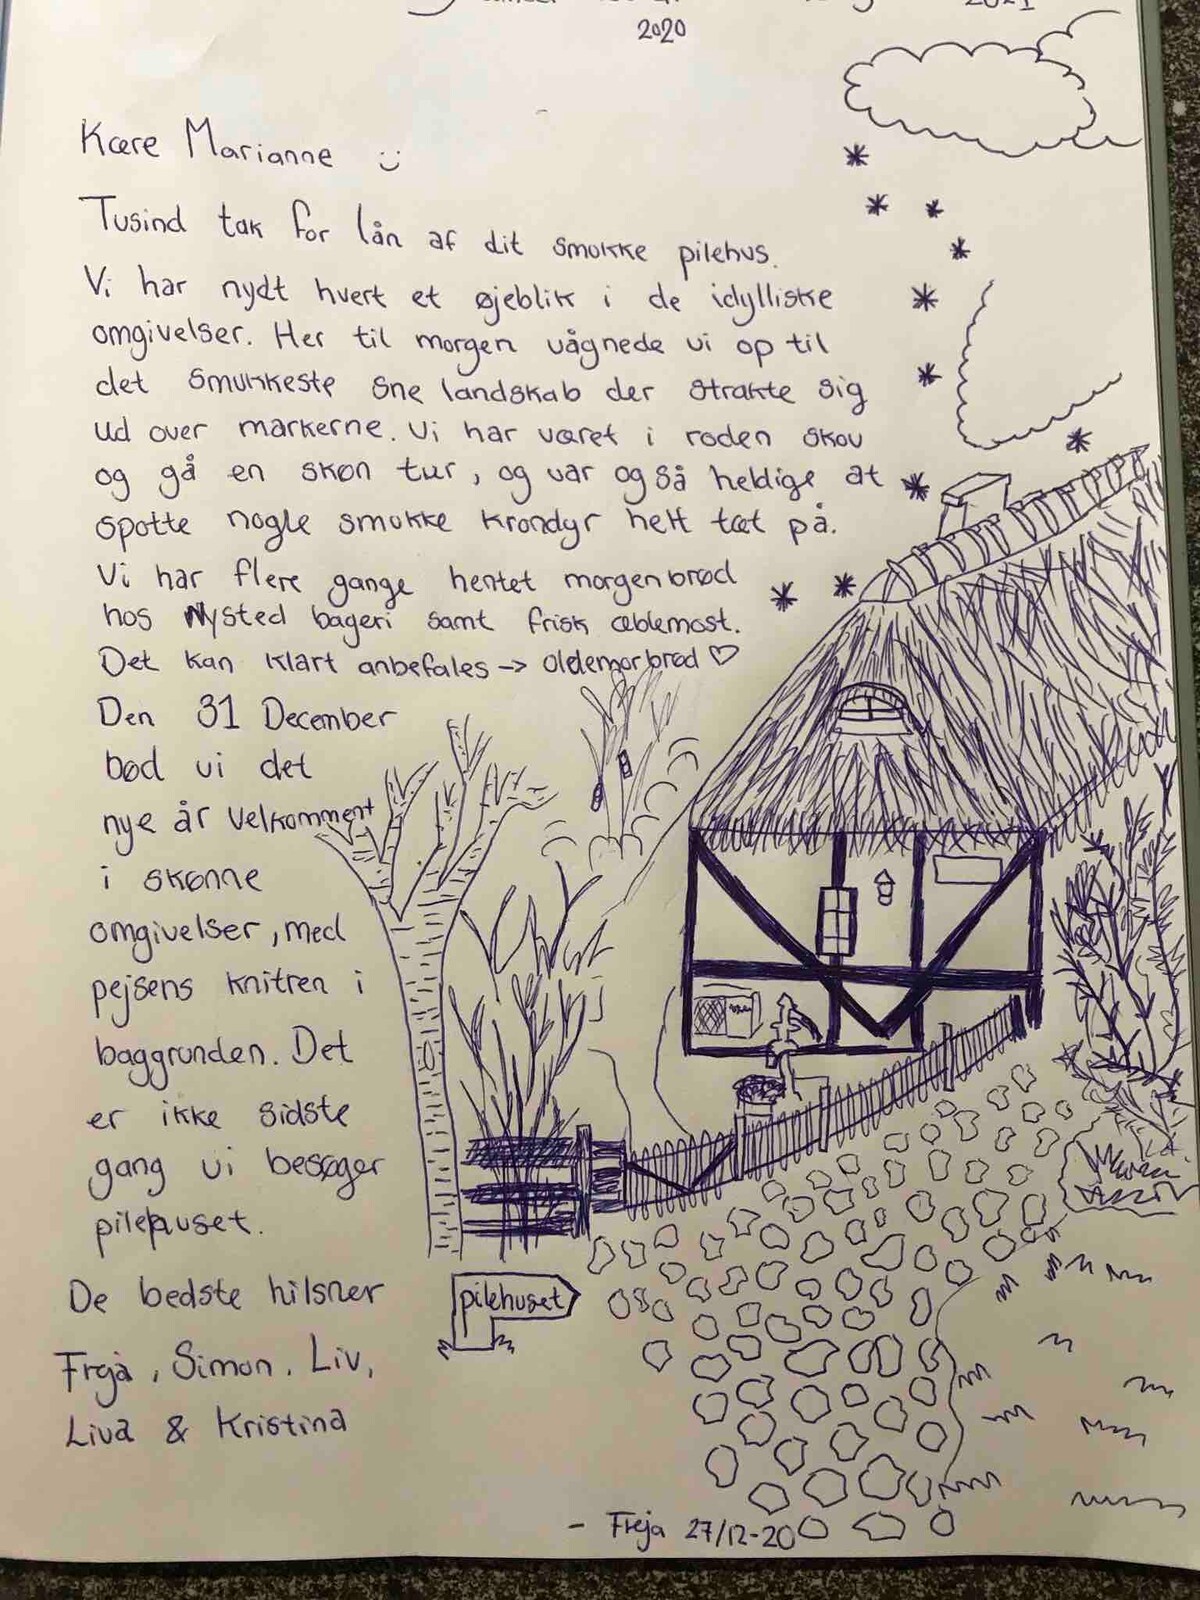 2020
2021
Kære Marianne :)
Tusind tak for lån af dit smukke pilehus.
Vi har nydt hvert et øjeblik i de idylliske
omgivelser. Her til morgen vågnede vi op til
det smukkeste sne landskab der strakte sig
ud over markerne. Vi har været i roden skov
og gå en skøn tur, og var også heldige at
spotte nogle smukke krondyr helt tæt på.
Vi har flere gange hentet morgenbrød
hos Nysted bageri samt frisk æblemost.
Det kan klart anbefales -> oldemorbrød ♡
Den 31 December
bød vi det
nye år velkomment
i skønne
omgivelser, med
pejsens knitren i
baggrunden. Det
er ikke sidste
gang vi besøger
pilehuset.
De bedste hilsner
Freja, Simon, Liv,
Liva & Kristina
pilehuset
- Freja 27/12-20